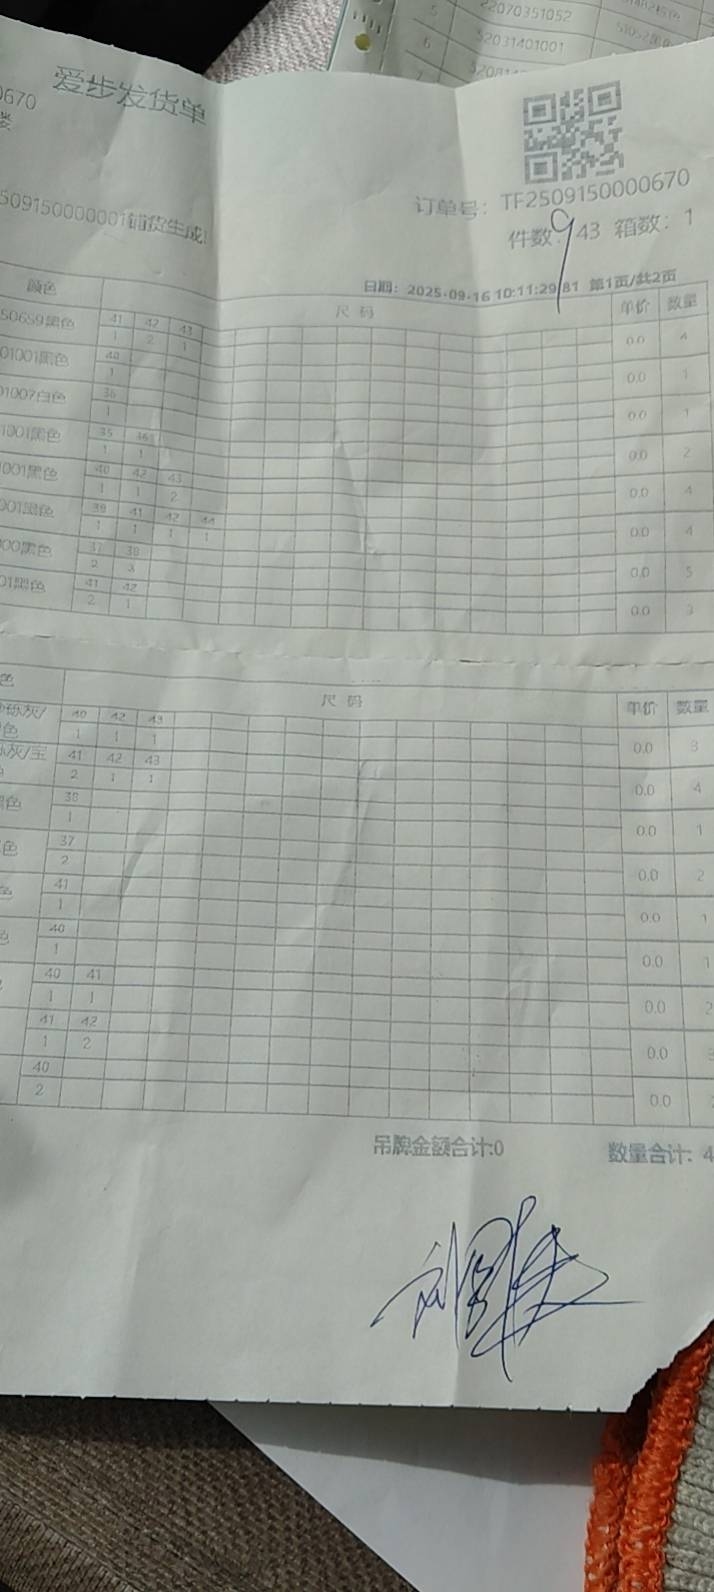 22070351052
6 52031401001
爱步发货单
0670
楼
订单号：TF2509150000670
509150000001铺货生成!
件数：943 箱数：1
日期：2025-09-16 10:11:29 81 第1页/共2页
颜色 尺码 单价 数量
50659黑色 41 42 43 0.0 4
1 2 1
01001黑色 40 0.0 1
1
01007白色 36 0.0 1
1
1001黑色 35 36 0.0 2
1 1
001黑色 40 42 43 0.0 4
1 1 2
001黑色 39 41 42 44 0.0 4
1 1 1 1
00黑色 37 38 0.0 5
2 3
01黑色 41 42 0.0 3
2 1
色 尺码 单价 数量
砾灰/ 40 42 43 0.0 3
色 1 1 1
灰/宝 41 42 43 0.0 4
2 1 1
黑色 38 0.0 1
1
色 37 0.0 2
2
色 41 0.0 1
1
色 40 0.0 1
1
40 41 0.0 2
1 1
41 42 0.0
1 2
40 0.0
2
吊牌金额合计:0 数量合计: 4